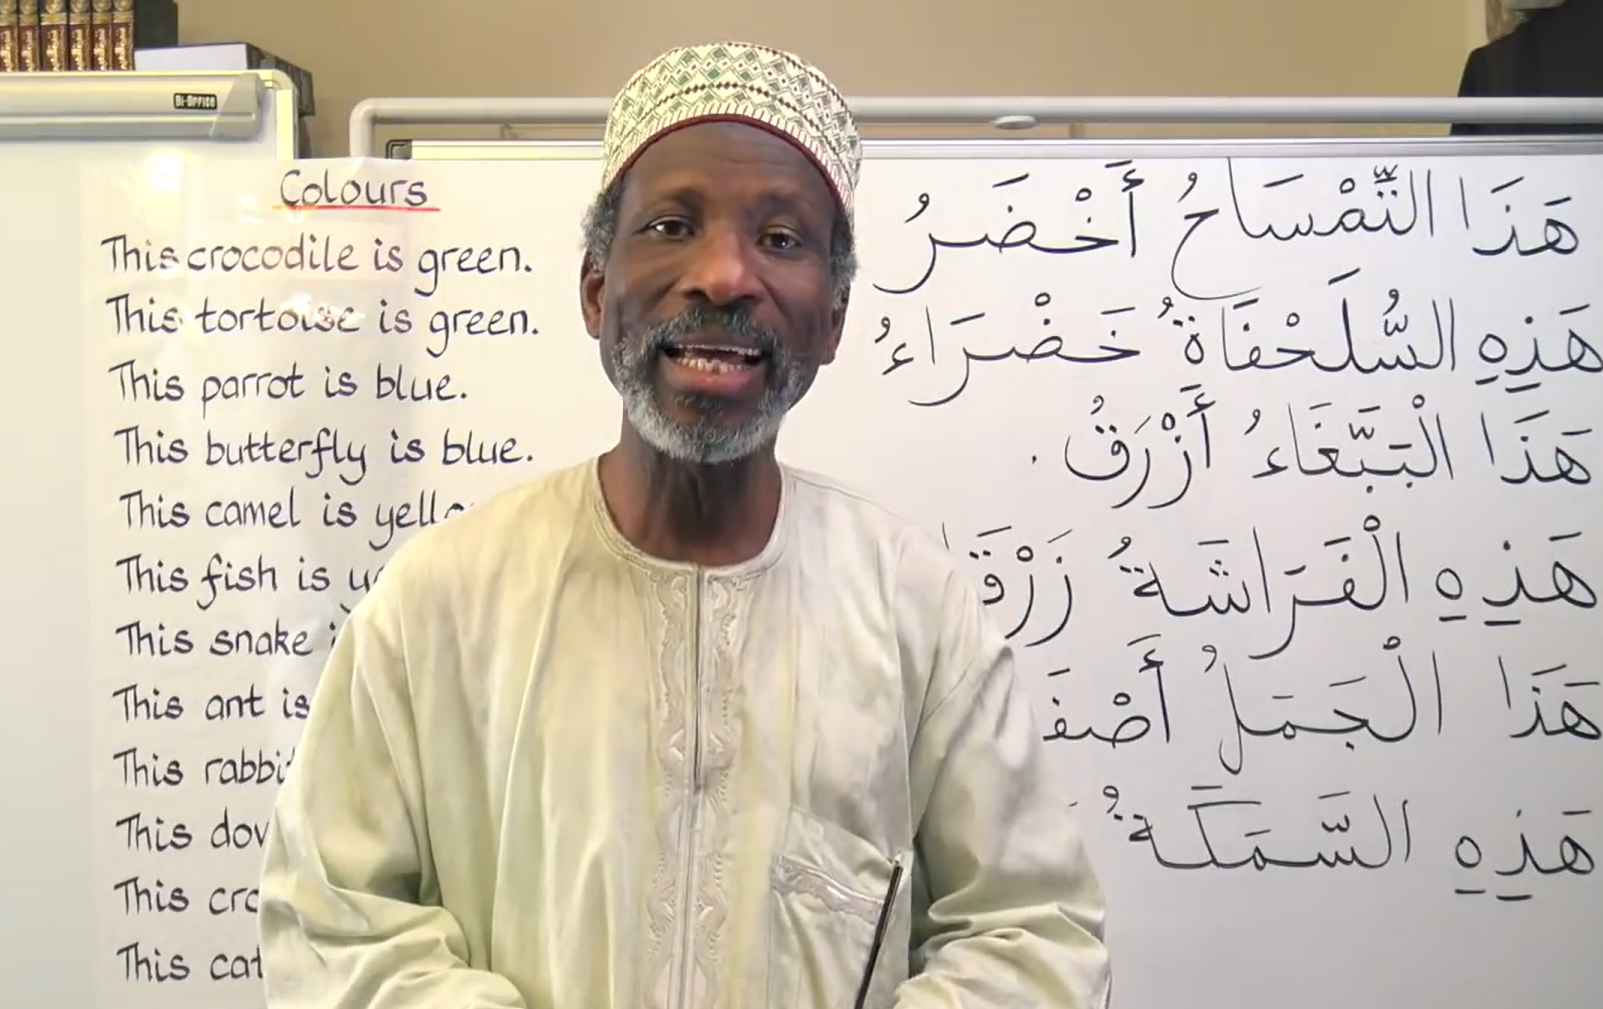 Bi-Office
Colours
This crocodile is green.
This tortoise is green.
This parrot is blue.
This butterfly is blue.
This camel is
This fish is
This snake
This ant is
This
This
This
This cat
هَذَا التِّمْسَاحُ أَخْضَرُ
هَذِهِ السُّلَحْفَاةُ خَضْرَاءُ
هَذَا الْبَبَّغَاءُ أَزْرَقُ .
هَذِهِ الْفَرَاشَةُ
هَذَا الْجَمَلُ
هَذِهِ السَّمَكَةُ